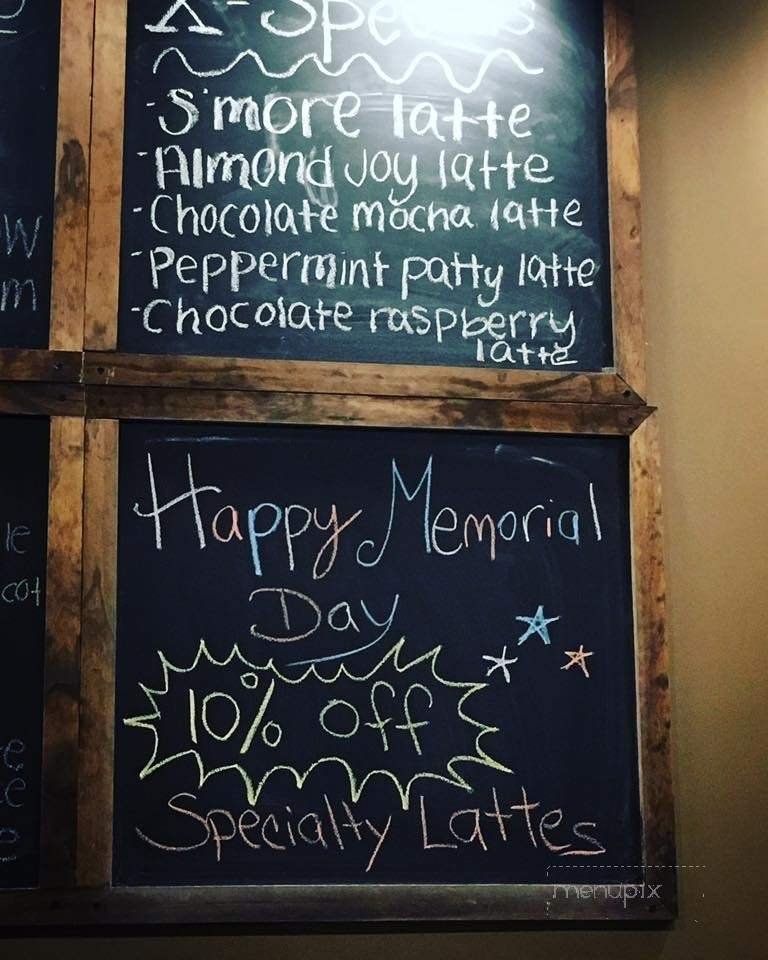 X-Specials
- S'more latte
- Almond Joy latte
- Chocolate mocha latte
- Peppermint patty latte
- Chocolate raspberry
latte
Happy Memorial
Day
10% off
Specialty Lattes
menupix